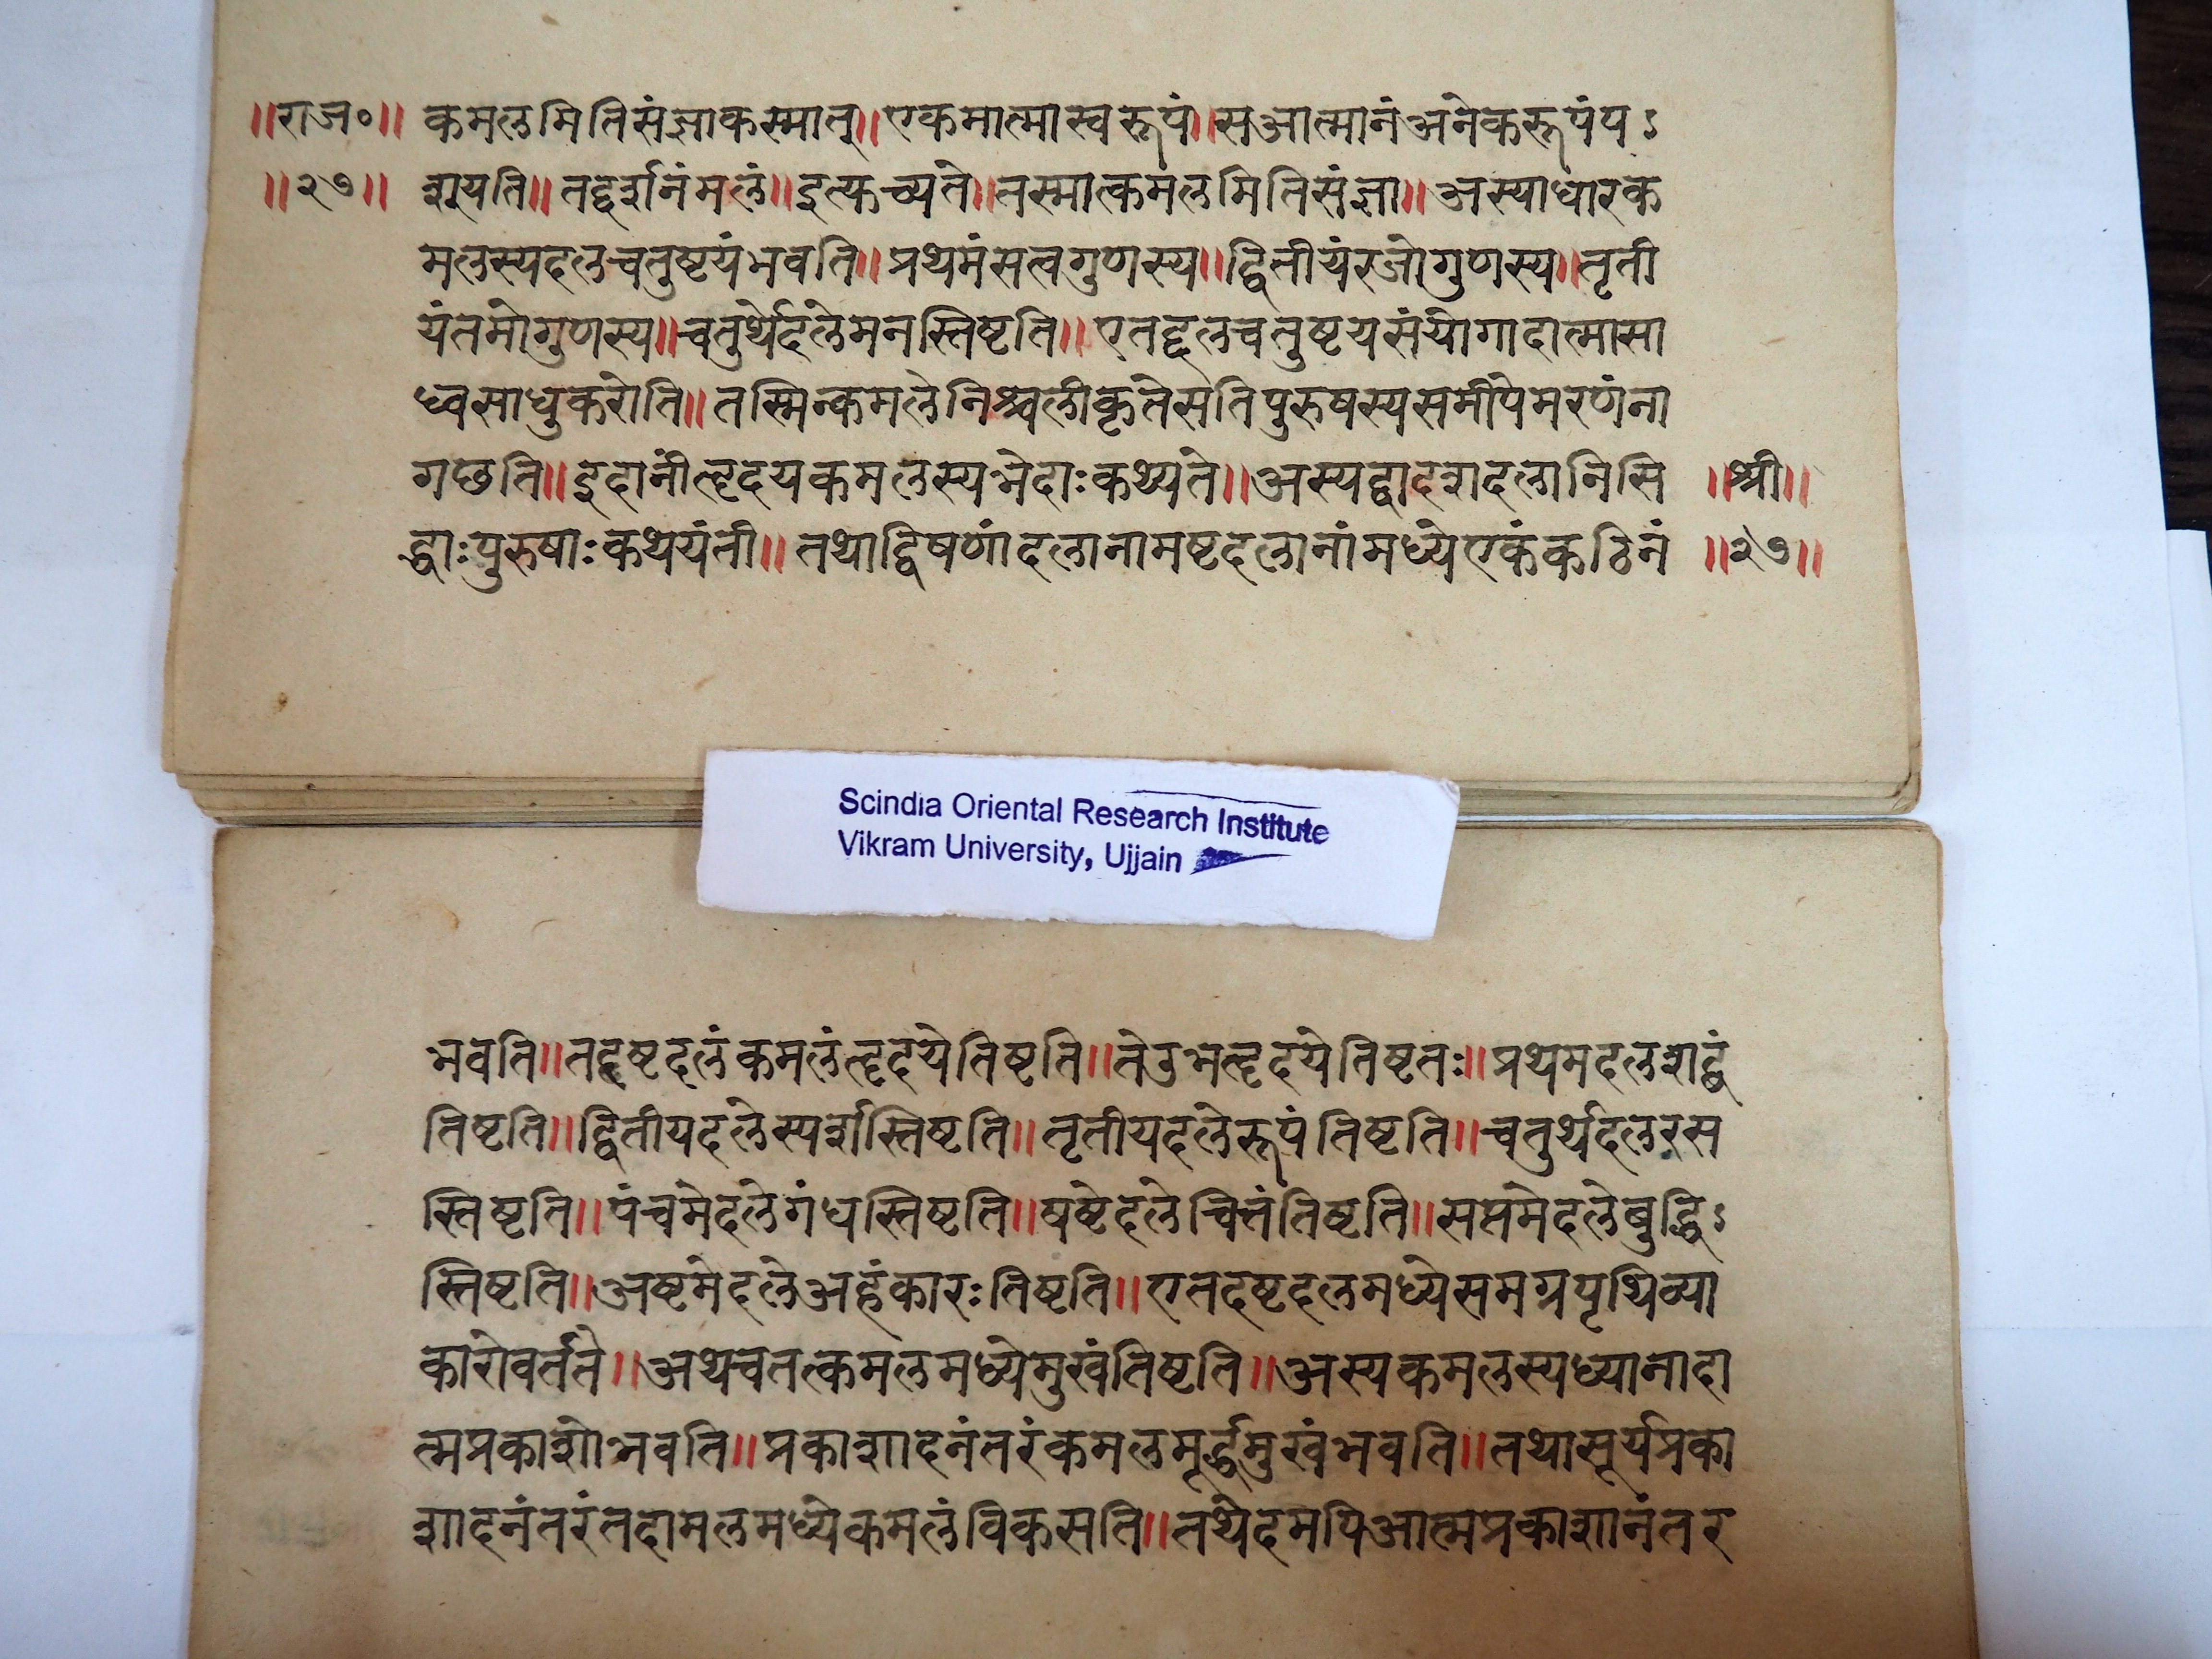 ॥राज०॥ कमलमितिसंज्ञाकस्मात्॥एकमात्मास्वरूपं॥सआत्मानंअनेकरूपंपऽ
॥२७॥ श्यति॥तद्दर्शनंमलं॥इत्कच्यते॥तस्मात्कमलमितिसंज्ञा॥अस्याधारक
मलस्यदलचतुष्टयंभवति॥प्रथमंसत्वगुणस्य॥द्वितीयंरजोगुणस्य॥तृती
यंतमोगुणस्य॥चतुर्थेदलेमनस्तिष्टति॥एतद्दलचतुष्टयसंयोगादात्मासा
ध्वसाधुकरोति॥तस्मिन्कमलेनिश्चलीकृतेसतिपुरुषस्यसमीपेमरणंना
गछति॥इदानींत्दृदयकमलस्यभेदाःकथ्यते॥अस्यद्वादशदलानिसि ॥श्री॥
द्धाःपुरुषाःकथयंती॥तथाद्विषणांदलानामष्टदलानांमध्येएकंकठिनं ॥२७॥
Scindia Oriental Research Institute
Vikram University, Ujjain
भवति॥तद्दष्टदलंकमलंत्दृदयेतिष्टति॥तेउभत्दृदयेतिष्टतः॥प्रथमदलशद्वं
तिष्टति॥द्वितीयदलेस्पर्शस्तिष्टति॥तृतीयदलेरूपंतिष्टति॥चतुर्थदलरस
स्तिष्टति॥पंचमेदलेगंधस्तिष्टति॥षष्टेदलेचित्तंतिष्टति॥सप्तमेदलेबुद्धिऽ
स्तिष्टति॥अष्टमेदलेअहंकारःतिष्टति॥एतदष्टदलमध्येसमग्रपृथिव्या
कारोवर्तते॥अथचतत्कमलमध्येमुखंतिष्टति॥अस्यकमलस्यध्यानादा
त्मप्रकाशोभवति॥प्रकाशादनंतरंकमलमूर्द्धमुखंभवति॥तथासूर्यप्रका
शादनंतरंतदामलमध्येकमलंविकसति॥तथेदमपिआत्मप्रकाशानंतर